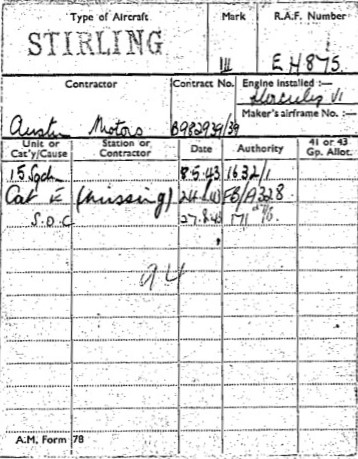 Type of Aircraft Mark R.A.F. Number
STIRLING III EH875.
Contractor Contract No. Engine installed :—
Hercules VI
Maker's airframe No. :—
Austin Motors B982939/39
Unit or Cat'y/Cause Station or Contractor Date Authority 41 or 43 Gp. Allot.
15 Sqdn 8.5.43 1632/1
Cat E (missing) FB/A328
S.O.C 27.8.43
94
A.M. Form 78